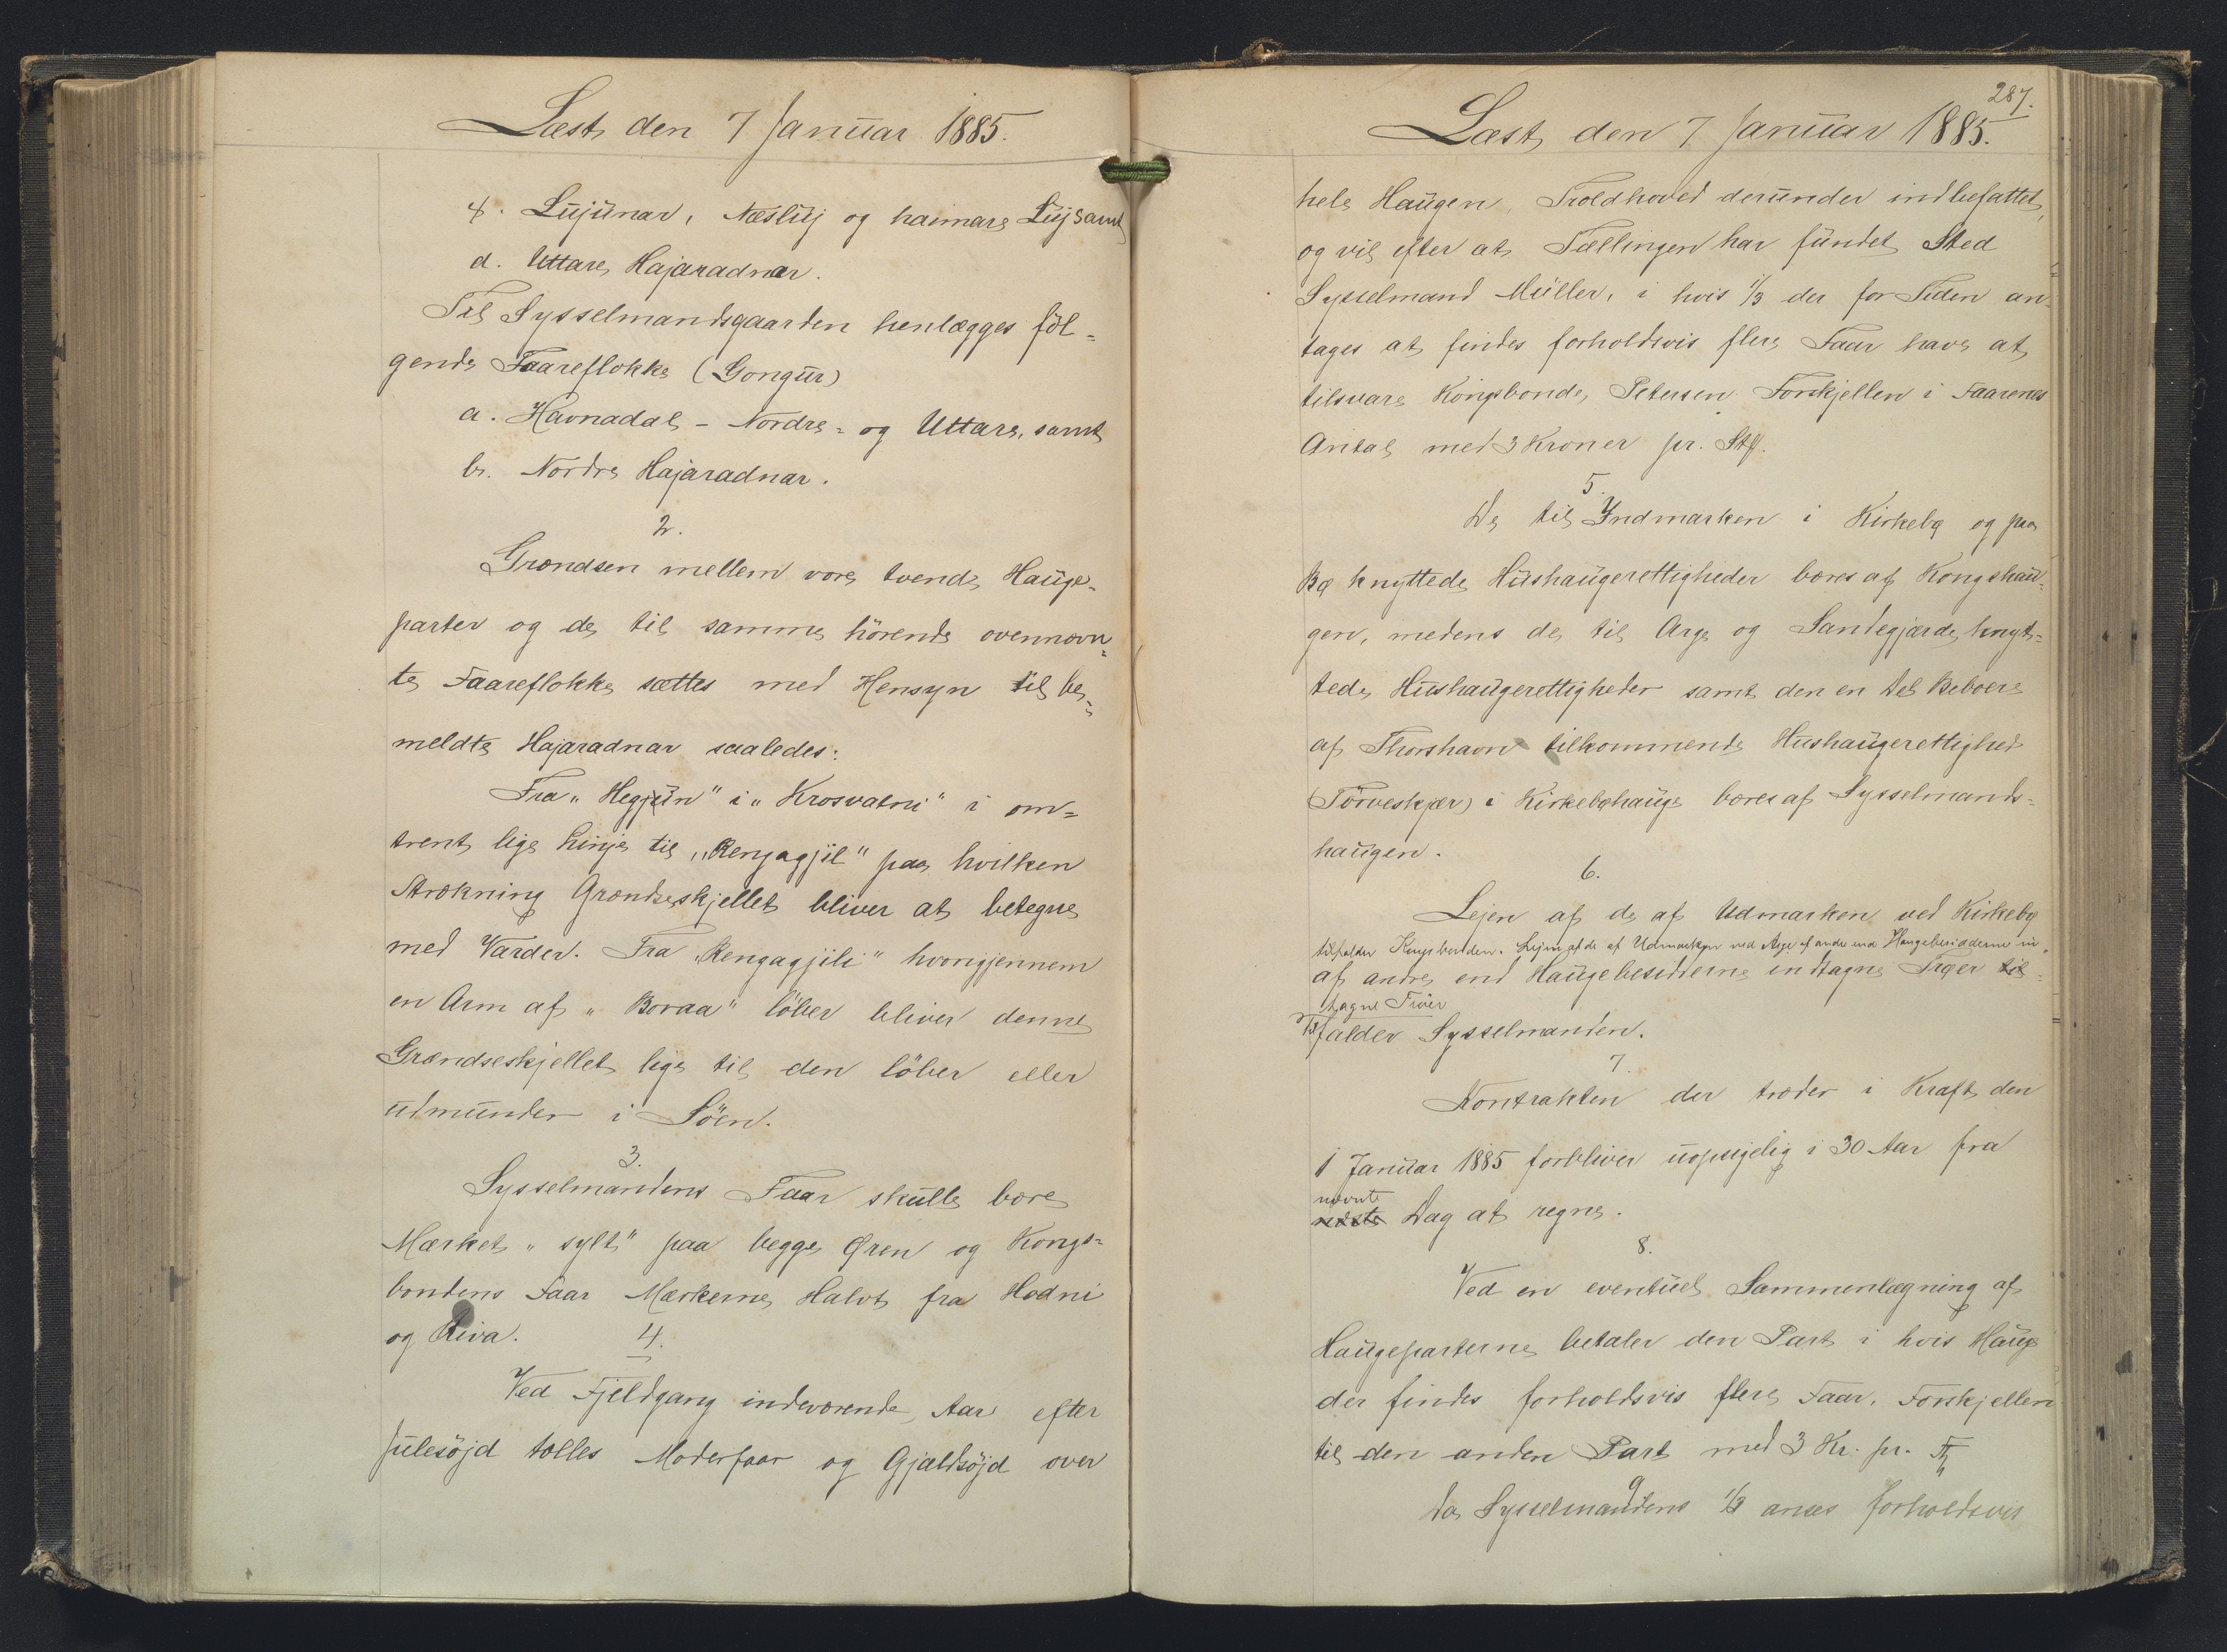 Læst den 7 Januar 1885.
4. Lujunar, Næsluj og haimare Luj samt
d. Uttare Hajaradnar.
Til Sysselmandsgaarden henlægges föl=
gende Faareflokke (Gongur)
a. Havnadal - Nordre= og Uttare, samt
b. Nordre Hajaradnar.
2.
Grændsen mellem vore tvende Hauge=
parter og de til samme hörende ovennævn=
te Faareflokke sættes med Hensyn til be=
meldte Hajaradnar saaledes:
Fra "Hegjun" i "Krosvatni" i om=
trent lige Linje til "Rengagjil" paa hvilken
Strækning Grændseskjellet bliver at betegne
med Varder. Fra "Rengagjili" hvorigjennem
en Arm af "Boraa" löber bliver denne
Grændseskjellet lige til den löber eller
udmunder i Söen.
3.
Sysselmandens Faar skulle bære
Mærket "sylt" paa begge Øren og Kongs=
bondens Faar Mærkerne Halvt fra Hodni
og Riva.
4.
Ved Fjeldgang indeværende Aar efter
Julesöjd tælles Moderfaar og Gjældsöjd over
287.
Læst den 7 Januar 1885.
hele Haugen Troldhoved derunder indbefattet,
og vil efter at Tællingen har fundet Sted
Sysselmand Müller, i hvis 1/3 der for Tiden an=
tages at findes forholdsvis flere Faar have at
tilsvare Kongsbonde Petersen Forskjellen i Faarenes
Antal med 3 Kroner pr. Stk.
5.
De til Indmarken i Kirkebø og paa
Bø knyttede Hushaugerettigheder bæres af Kongshau=
gen, medens de til Arge og Sandegjærde knyt=
tede Hushaugerettigheder samt den en del Beboere
af Thorshavn tilkommende Hushaugerettighed
(Törveskjær) i Kirkebøhauge bæres af Sysselmands=
haugen.
6.
Lejen af de af Udmarken ved Kirkebø
tilfalder Kongsbonden. Lejen af de af Udmarken ved Arge af andre end Haugebesidderne in=
af andre end Haugebesidderne indtagne Trøer til=
tagne Trøer
til falder Sysselmanden.
7.
Kontrakten der træder i Kraft den
1 Januar 1885 forbliver uopsigelig i 30 Aar fra
nævnte
næste Dag at regne.
8.
Ved en eventuel Sammenlægning af
Haugeparterne betaler den Part i hvis Hauge
der findes forholdsvis flere Faar, Forskjellen
til den anden Part med 3 Kr. pr.
9
Da Sysselmandens 1/3 anses forholdsvis